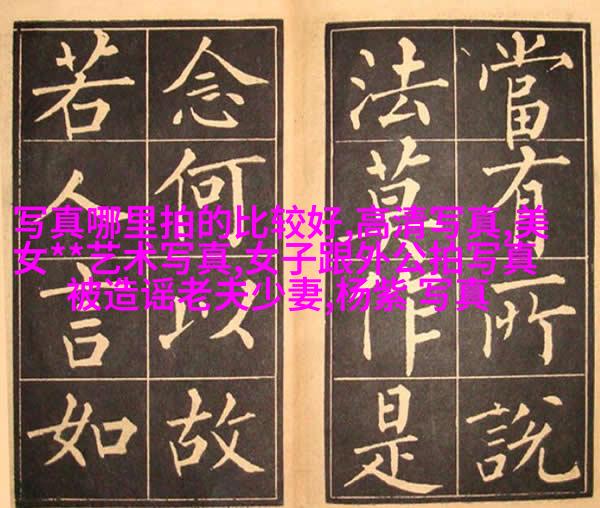 當有所說
法莫作是
念何以故
若人言如
写真哪里拍的比较好,高清写真,美
女**艺术写真,女子跟外公拍写真
被造谣老夫少妻,杨紫 写真